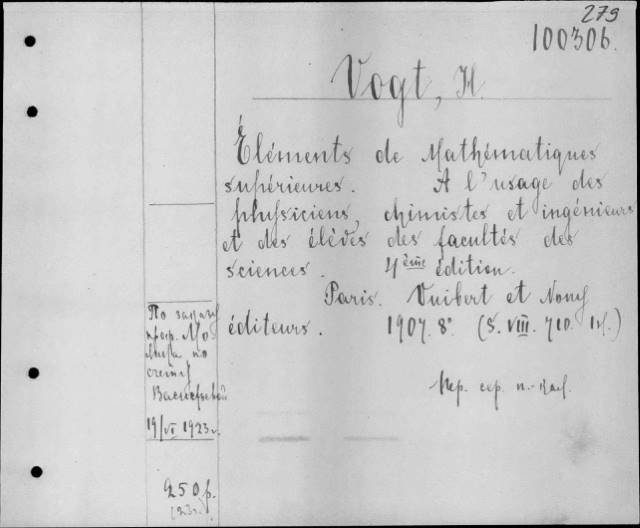 279
100306.
Vogt, H.
Éléments de Mathématiques
supérieures. A l'usage des
physiciens, chimistes et ingénieurs
et des élèves des facultés des
sciences. 4ème édition.
Paris. Vuibert et Nony
éditeurs. 1907. 8° (S. VIII. 710.
По заказу
проф.
по
счету
19/VI 1923 г.
250 р.